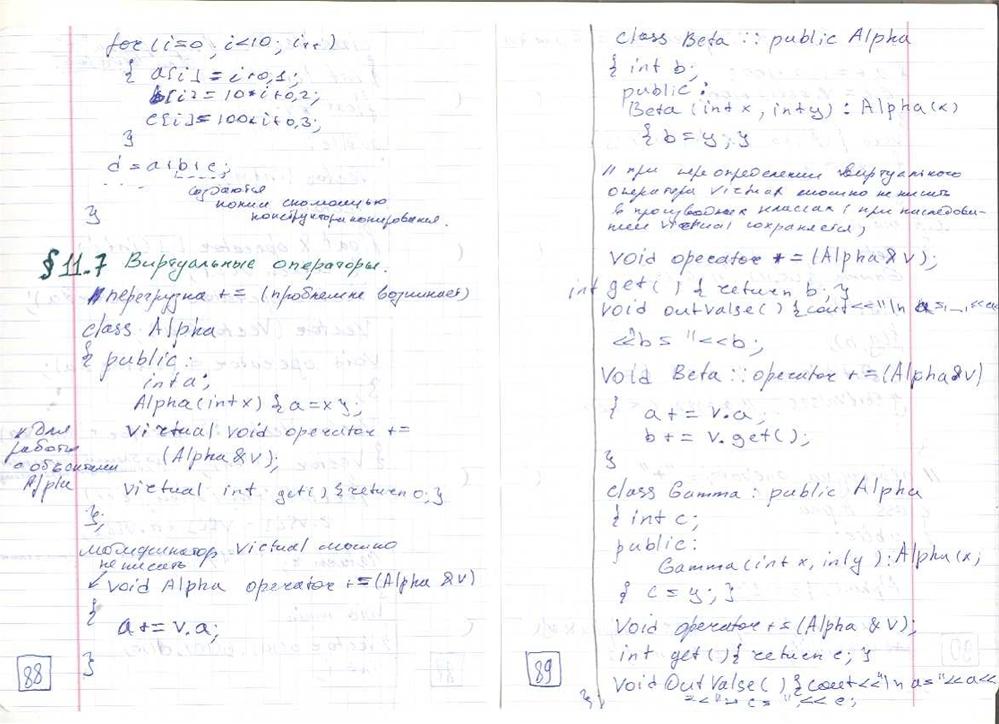 for (i=0, i<10; i++)
{ a[i] = i+0,1;
b[i] = 10*i+0,2;
c[i] = 100*i+0,3;
}
d = a+b+c;
создаются
копии с помощью
конструктора копирования.
}
§ 11.7 Виртуальные операторы.
// перегрузка += (проблем не возникает)
class Alpha
{ public:
int a;
Alpha (int x) { a = x };
// для
работы
с объектами
Alpha
virtual void operator +=
(Alpha & v);
virtual int get() { return 0; }
};
модификатор virtual можно
не писать
void Alpha operator += (Alpha & v)
{
a += v.a;
}
88
class Beta :: public Alpha
{ int b;
public:
Beta (int x, int y) : Alpha (x)
{ b = y; }
// при переопределении виртуального
оператора virtual можно не писать
в производных классах (при наследова-
нии virtual сохраняется)
void operator += (Alpha & v);
int get() { return b; }
void outvalse() { cout << "\n a = ... << a
<< b = " << b;
void Beta :: operator += (Alpha & v)
{
a += v.a;
b += v.get();
}
class Gamma : public Alpha
{ int c;
public:
Gamma (int x, int y) : Alpha (x;
{ c = y; }
void operator += (Alpha & v);
int get() { return c; }
void OutValse() { cout << "\n a = " << a <<
<< " c = " << c;
};
89